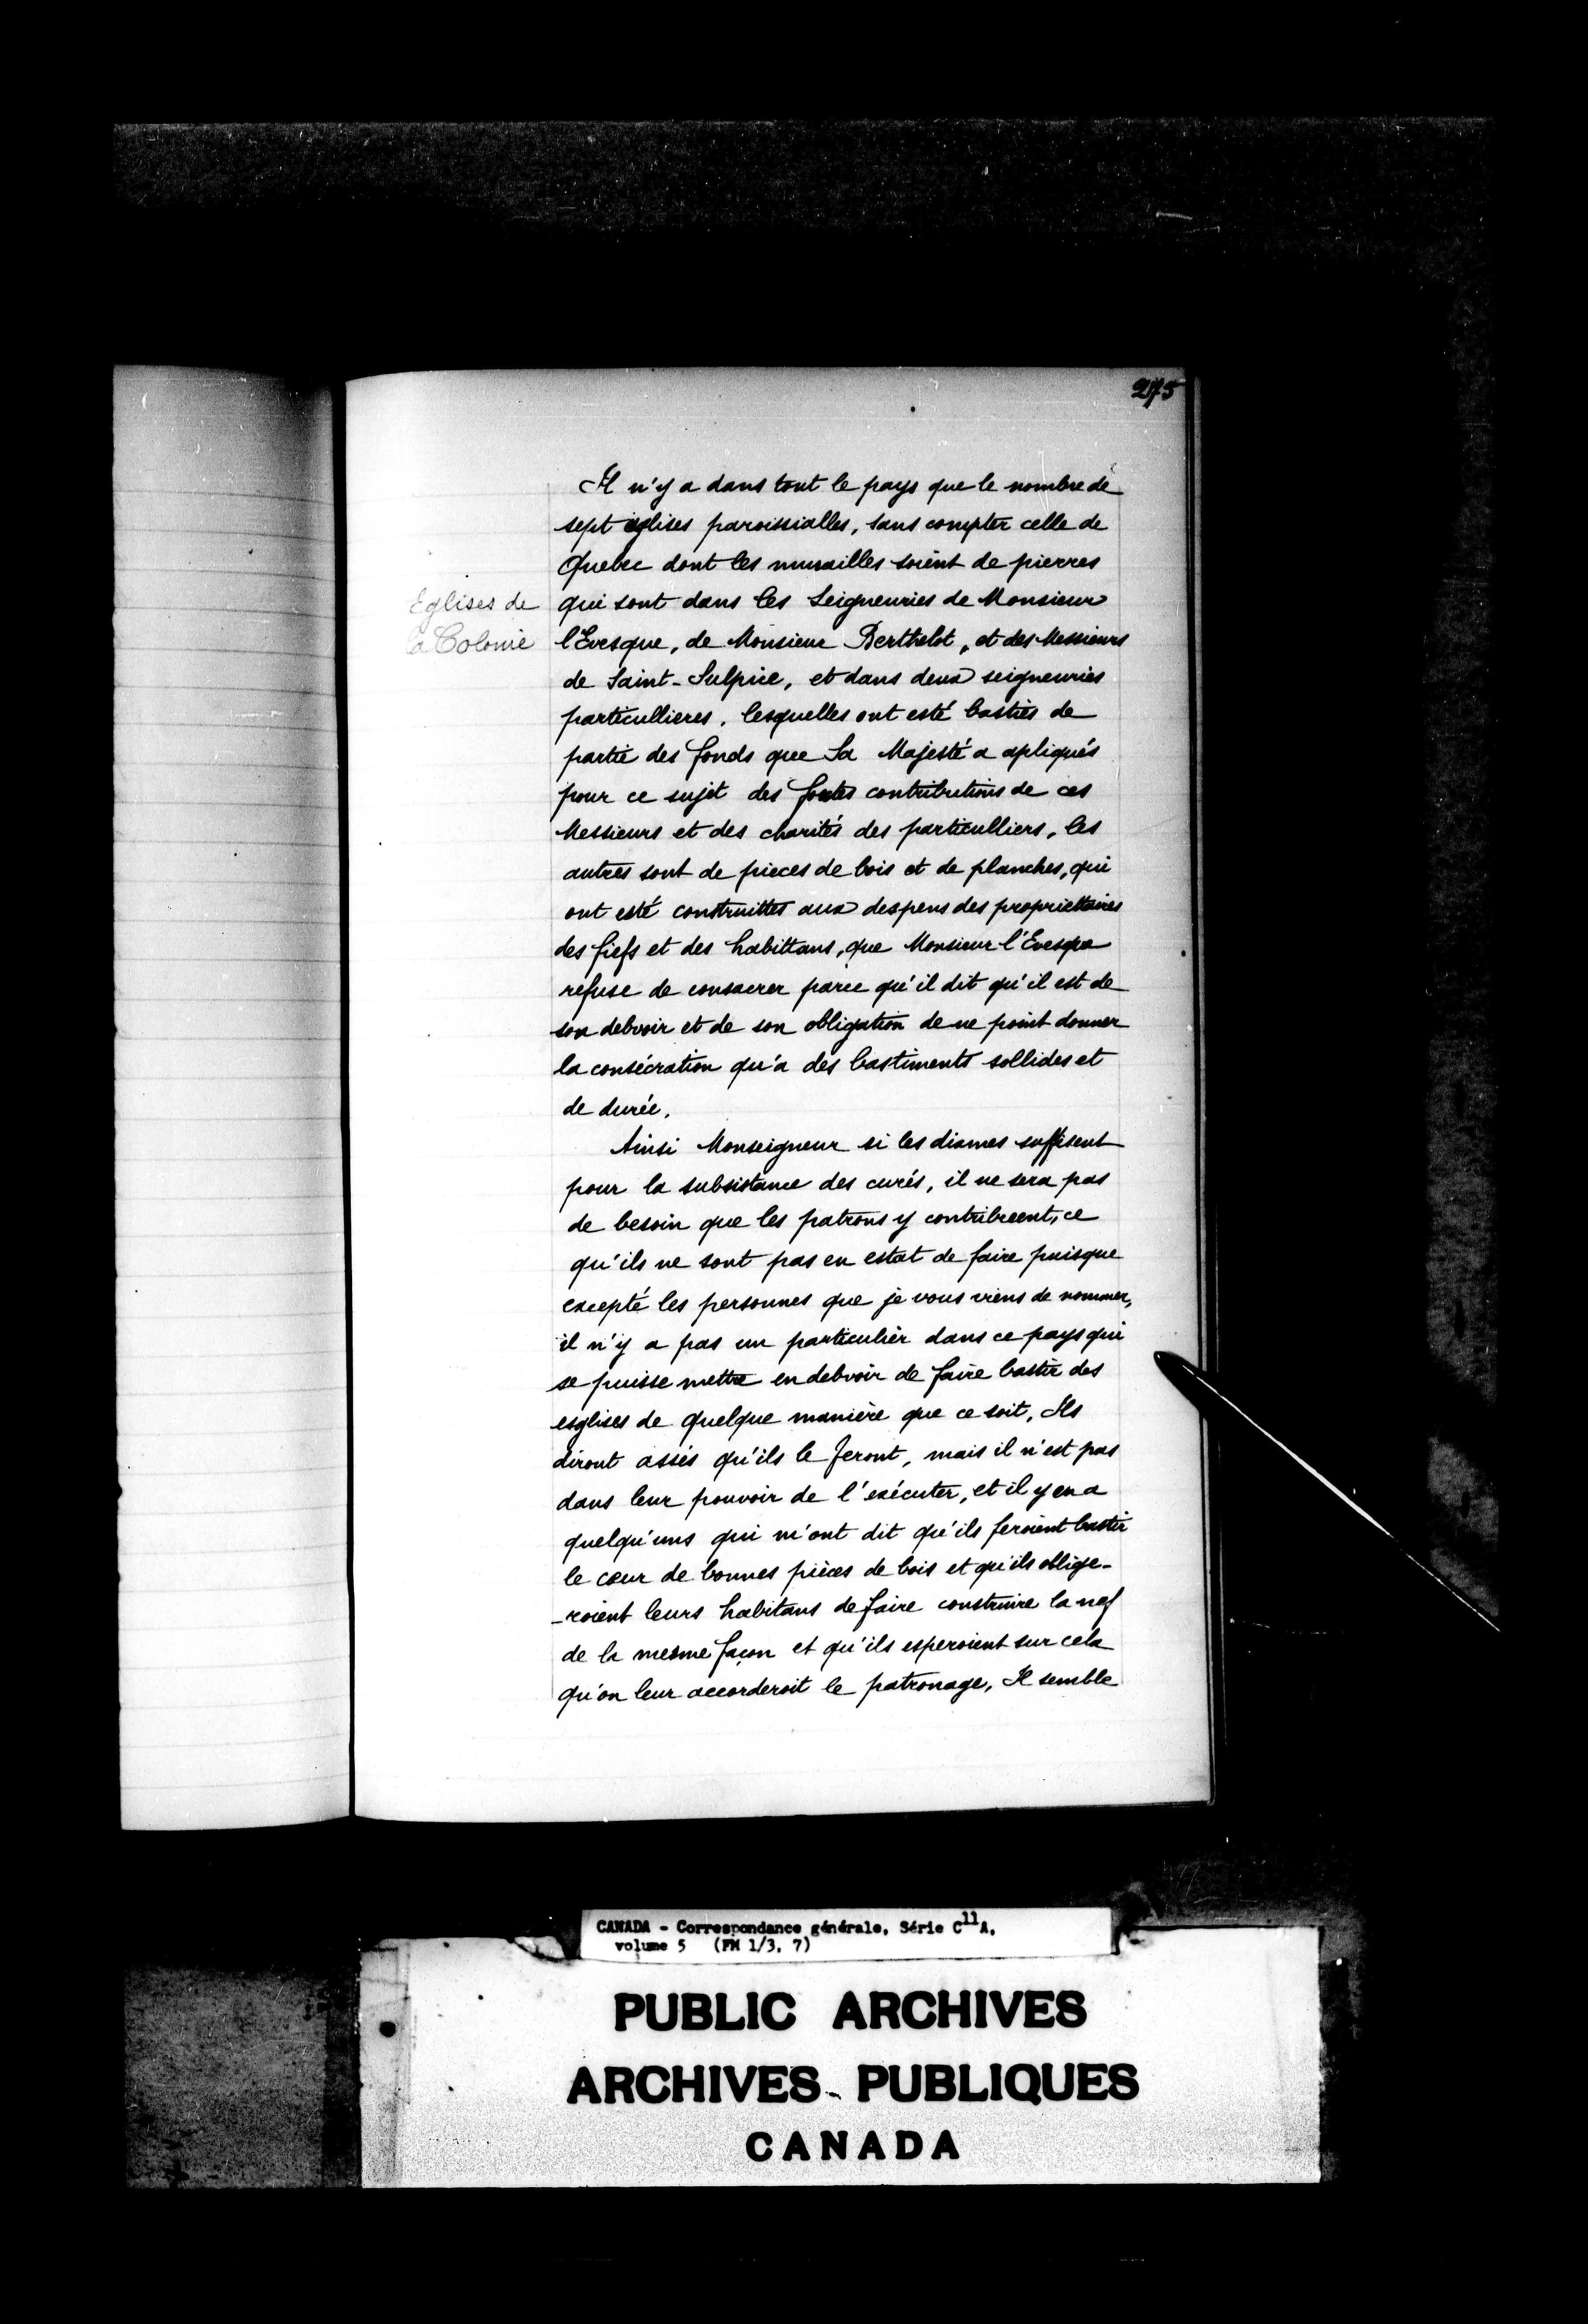 275
Il n'y a dans tout le pays que le nombre de
sept eglises paroissialles, sans compter celle de
Quebec dont les murailles soient de pierres
Eglises de
la Colonie
qui sont dans les Seigneuries de Monsieur
l'Evesque, de Monsieur Berthelot, et des Messieurs
de Saint-Sulpice, et dans deux seigneuries
particullieres, lesquelles ont esté basties de
partie des fonds que Sa Majesté a apliqués
pour ce sujet des fortes contributions de ces
Messieurs et des charités des particulliers, les
autres sont de pieces de bois et de planches, qui
ont esté construittes aux despens des propriettaires
des fiefs et des habittans, que Monsieur l'Evesque
refuse de consacrer parce qu'il dit qu'il est de
son debvoir et de son obligation de ne point donner
la consécration qu'a des bastiments sollides et
de durée.
Ainsi Monseigneur si les dixmes suffisent
pour la subsistance des curés, il ne sera pas
de besoin que les patrons y contribuent, ce
qu'ils ne sont pas en estat de faire puisque
excepté les personnes que je vous viens de nommer,
il n'y a pas un particulier dans ce pays qui
se puisse mettre en debvoir de faire bastir des
esglises de quelque manière que ce soit, Ils
diront assés qu'ils le feront, mais il n'est pas
dans leur pouvoir de l'exécuter, et il y en a
quelqu'uns qui m'ont dit qu'ils feroient bastir
le cœur de bonnes pièces de bois et qu'ils oblige-
-roient leurs habitans de faire construire la nef
de la mesme façon et qu'ils esperoient sur cela
qu'on leur accorderoit le patronage, Il semble
CANADA - Correspondance générale, Série C11A,
volume 5 (FM 1/3, 7)
PUBLIC ARCHIVES
ARCHIVES PUBLIQUES
CANADA